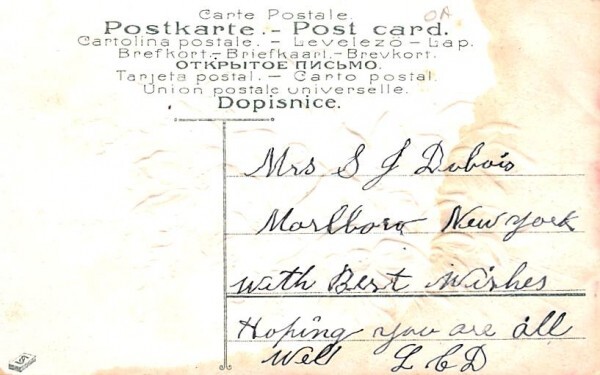 OA
Carte Postale.
Postkarte. - Post card.
Cartolina postale. - Levelező - Lap.
Brefkort. - Briefkaart. - Brevkort.
ОТКРЫТОЕ ПИСЬМО.
Tarjeta postal. - Carto postal.
Union postale universelle.
Dopisnice.
Mrs S J Dubois
Marlboro New york
with Best Wishes
Hoping you are all
Well L C D